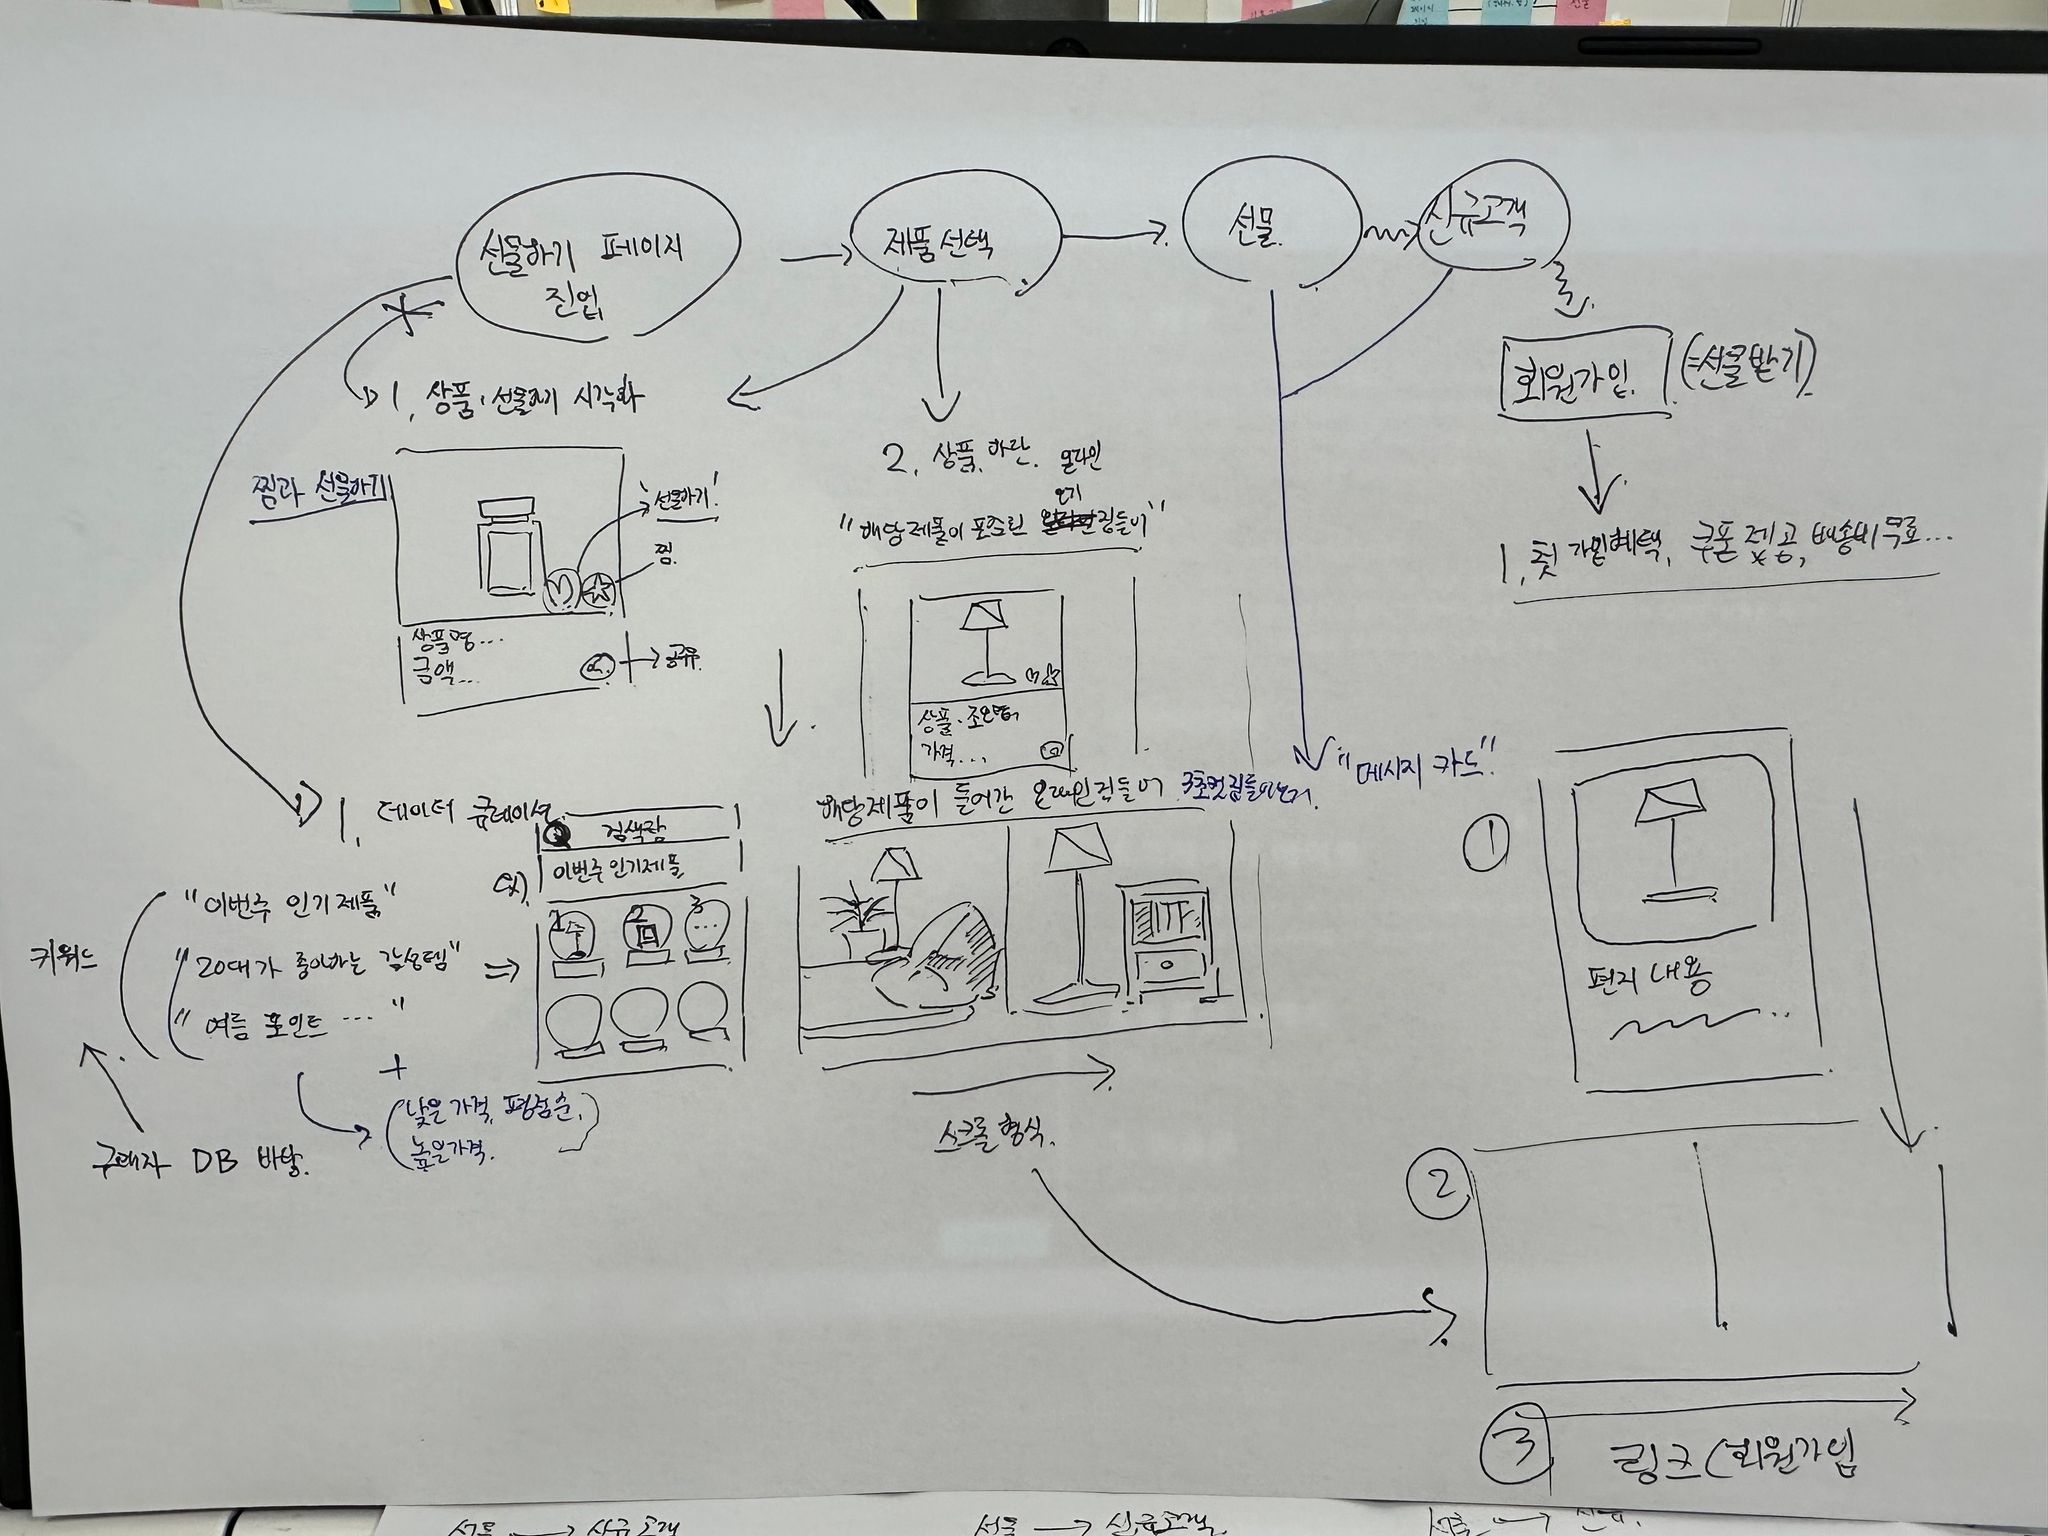 선물하기 페이지
진입
제품 선택
선물.
신규고객
회원가입.
(=선물받기)
1. 첫 가입혜택, 쿠폰 제공, 배송비 무료...
1. 상품·선물하기 시각화
찜과 선물하기
선물하기!
찜.
상품명...
금액...
공유.
2. 상품 하단.
온라인
인기
"해당제품이 포함된 집들이"
상품·조명
가격...
해당제품이 들어간 온라인집들이
"메시지 카드"
1. 데이터 큐레이션
검색창
이번주 인기제품
ex).
1
2
3
...
키워드
"이번주 인기제품"
"20대가 좋아하는 감성템"
"여름 포인트 ... "
+
(낮은 가격, 평점순,
높은가격.
구매자 DB 바탕.
스크롤 형식.
①
편지 내용
②
③
링크 (회원가입
선물 → 신규고객
선물 → 신규고객